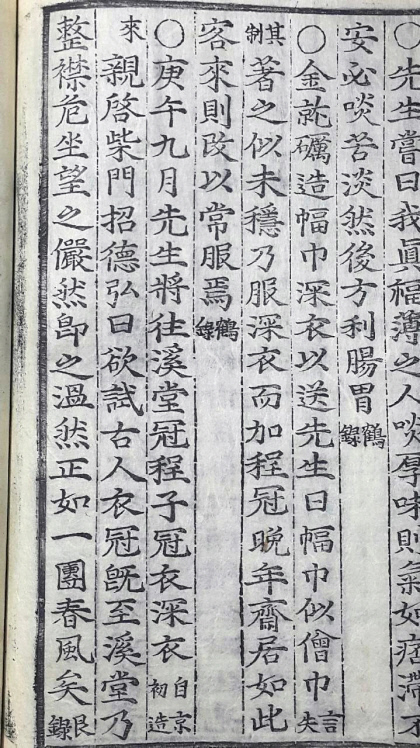 ○先生嘗曰我眞福薄之人啖厚味則氣如痞滯不
安必啖苦淡然後方利腸胃鶴錄
○金就礪造幅巾深衣以送先生曰幅巾似僧巾言失
其制著之似未穩乃服深衣而加程冠晩年齋居如此
客來則改以常服焉鶴錄
○庚午九月先生將往溪堂冠程子冠衣深衣自京初造
來親啓柴門招德弘曰欲試古人衣冠旣至溪堂乃
整襟危坐望之儼然卽之溫然正如一團春風矣艮錄